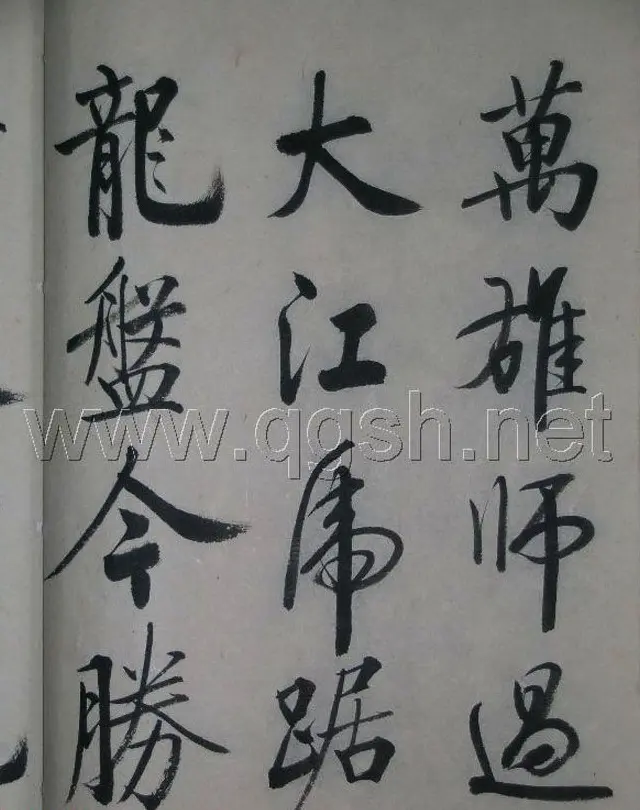 萬雄师過
大江虎踞
龍盤今勝
www.qgsh.net